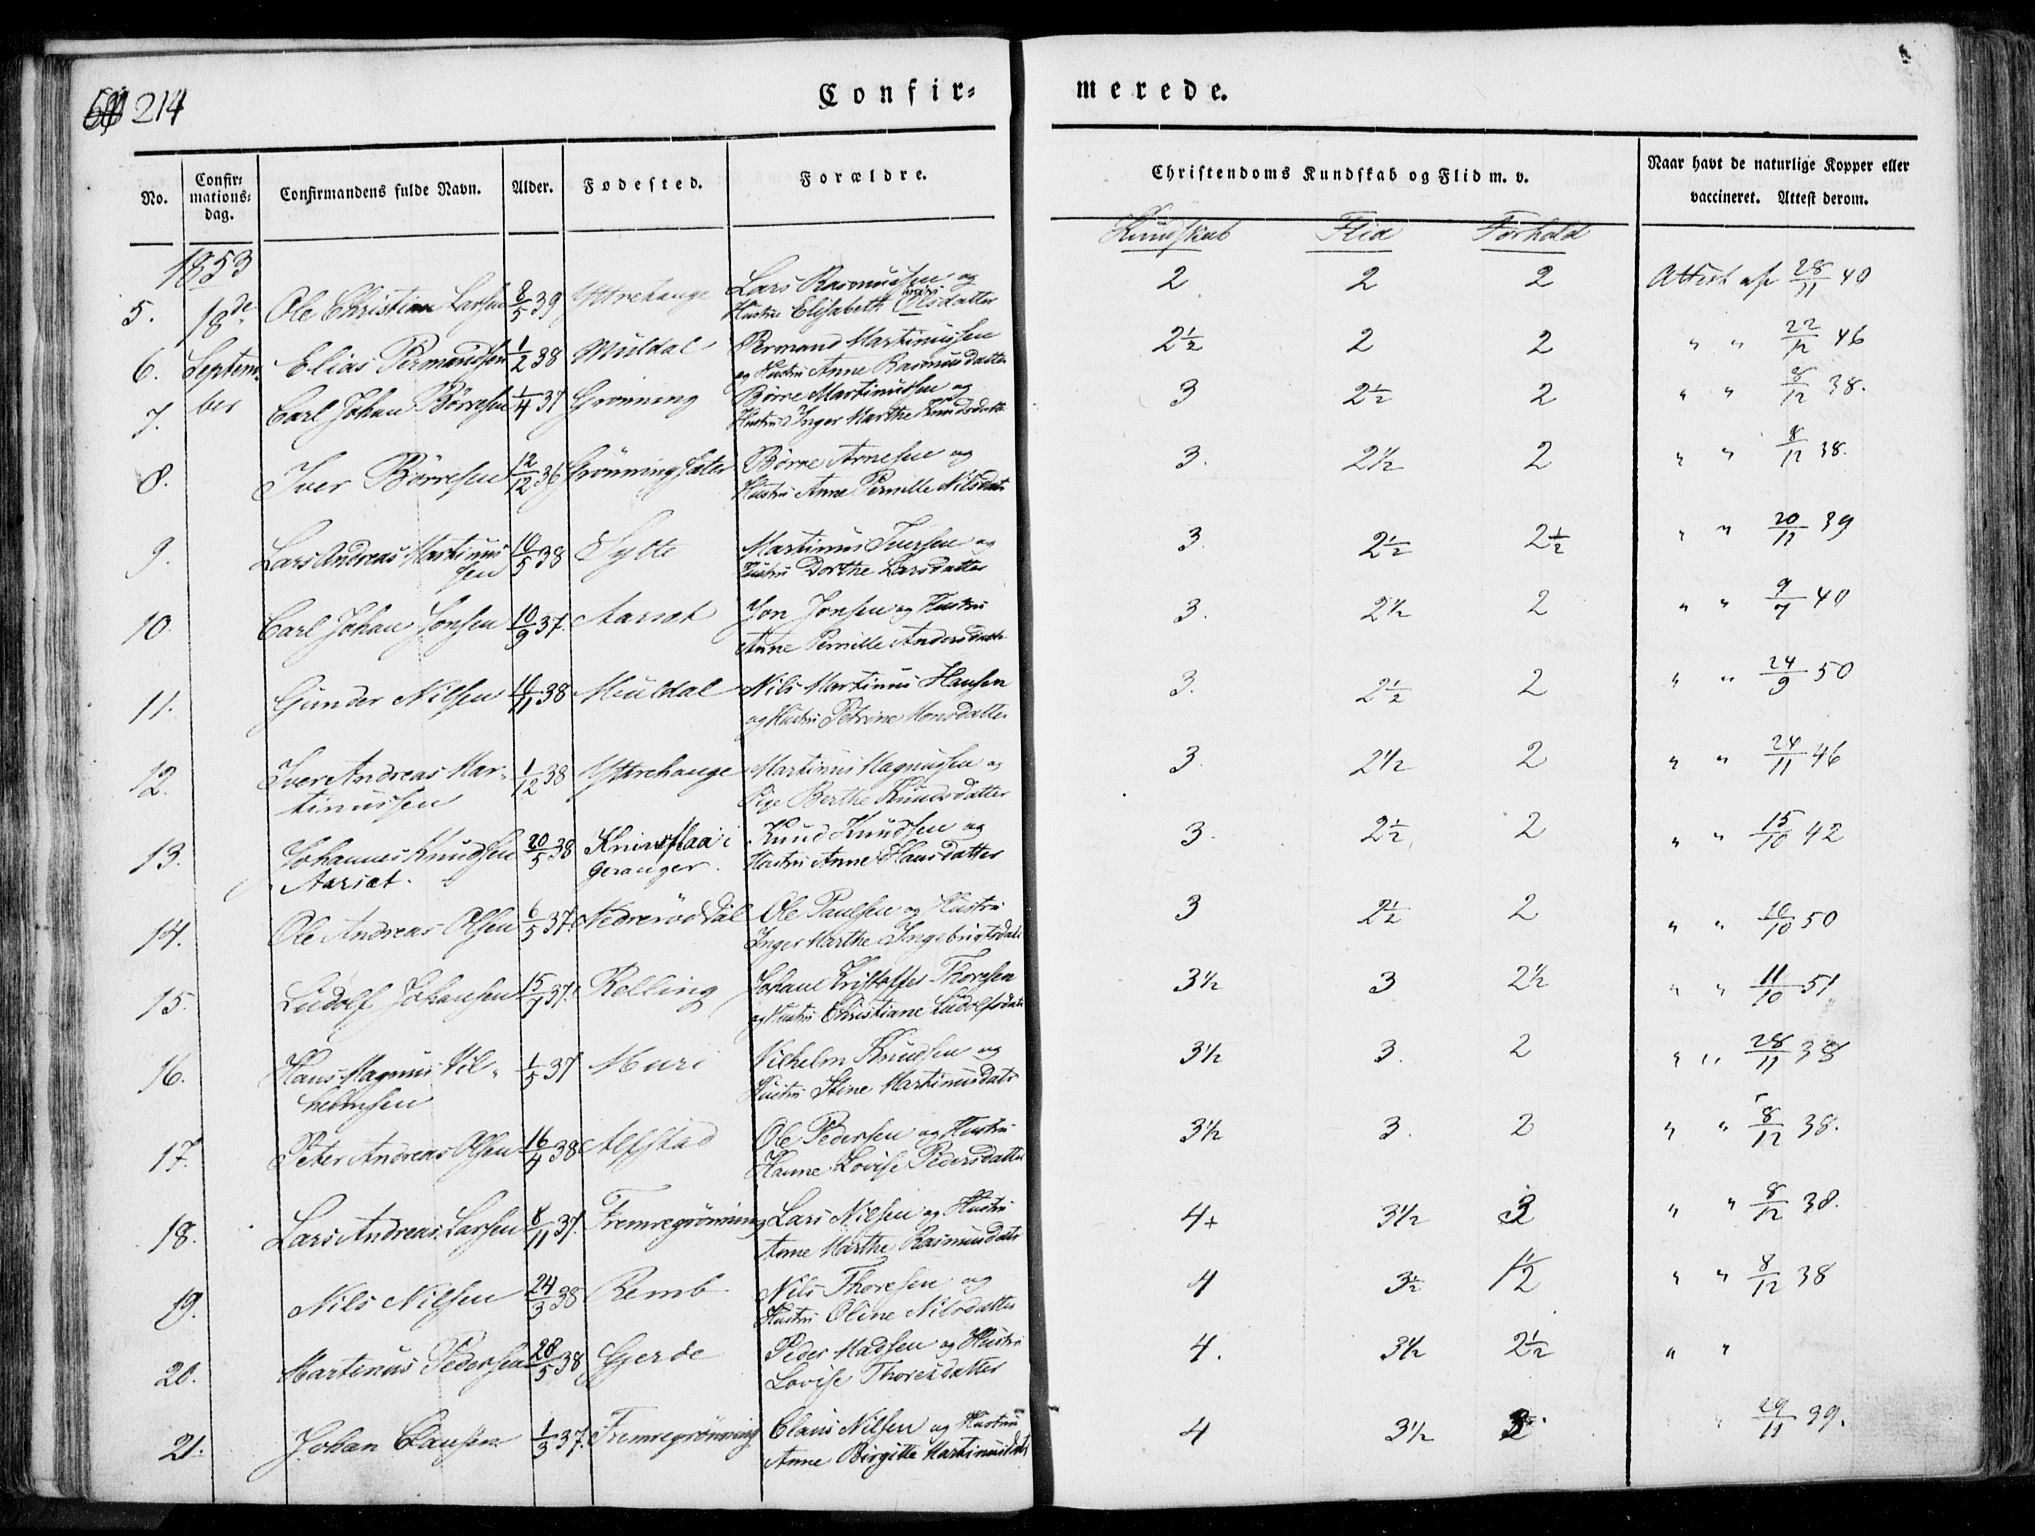 214
Confir=
merede.
No. Confir=mations=dag. Confirmandens fulde Navn. Alder. Fødested. Forældre. Christendoms Kundskab og Flid m. v. Naar havt de naturlige Kopper eller vaccineret. Attest derom.
Kundskab Flid Forhold
1853
5. 18de Ole Christian Larsen 8/5 39 Yttrehauge Lars Rasmussen og 2 2 2 Attest af 28/11 40
Hustru Elisabeth Olsdatter
6. Septem- Elias Permandsen 1/2 38 Muldal Permand Martinussen 2 1/2 2 2 " " 22/12 46
og Hustru Anne Rasmusdatter
7. ber Carl Johan Børresen 1/4 37 Grønning Børre Martinussen og 3 2 1/2 2 " " 8/12 38.
Hustru Inger Marthe Knudsdatt
8. Iver Børresen 12/12 36 Grønningsæter Børre Arnesen og 3. 2 1/2 2 " " 8/12 38.
Hustru Anne Pernille Nilsdatt
9. Lars Andreas Martinus 10/5 38 Sylte Martinus Iversen og 3. 2 1/2 2 1/2 " " 20/11 39
sen Hustru Dorthe Larsdatter
10. Carl Johan Jonsen 10/9 37. Aarsæt Jon Jonsen og Hustru 3. 2 1/2 2 " " 9/7 40
Anne Pernille Andersdatt
11. Gunder Nilsen 10/11 38 Muldal Nils Martinus Hansen 3. 2 1/2 2 " " 24/9 50
og Hustru Petrine Monsdatter
12. Iver Andreas Mar- 1/12 38 Yttrehauge Martinus Magnussen og 3. 2 1/2 2 " " 24/11 46
tinussen Pige Berthe Knudsdatter
13. Johannes Knudsen 20/5 38 Knivsflaa i Knud Knudsen og 3. 2 1/2 2 " " 15/10 42
Aarsæt. Geranger. Hustru Anne Hansdatter
14. Ole Andreas Olsen 6/5 37 Nedrerøddal Ole Paulsen og Hustru 3 2 1/2 2 " " 10/10 50
Inger Marthe Ingebrigtsdatt
15. Ludolf Johansen 15/7 37. Relling Johan Kristoffer Thoresen 3 1/2 3 2 1/2 " " 11/10 51
og Hustru Christiane Ludolfsdatt
16. Hans Magnus Vil- 1/5 37 Muri Vilhelm Knudsen og 3 1/2 3. 2 " " 28/11 38
helmsen Hustru Stine Martinusdatt
17. Peter Andreas Olsen 16/4 38 Alfstad Ole Pedersen og Hustru 3 1/2 3. 2 " " 8/12 38.
Hanne Lovise Pedersdatter
18. Lars Andreas Larsen 8/11 37. Fremregrønning Lars Nilsen og Hustru 4+ 3 1/2 3 " " 8/12 38.
Anne Marthe Rasmusdatt
19. Nils Nilsen 24/3 38 Remb Nils Thoresen og 4 3 1/2 1 1/2 " " 8/12 38
Hustru Oline Nilsdatter
20. Martinus Pedersen 28/5 38 Gjerde Peder Madsen og Hustru 4. 3 1/2 2 1/2 " "
Lovise Thoresdatter
21. Johan Clausen 1/3 37. Fremregrønning Claus Nilsen og Hustru 4 3 1/2 29/11 39.
Anne Birgitte Martinusdatt